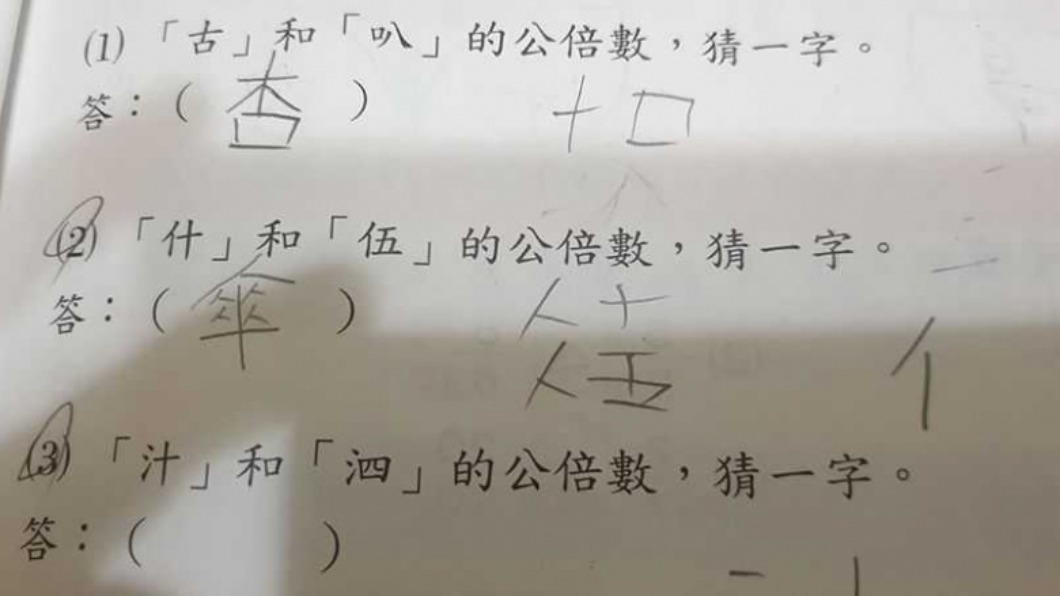 (1)「古」和「叭」的公倍數，猜一字。
答：( 杏 ) 十口
(2)「什」和「伍」的公倍數，猜一字。
答：( 傘 ) 人十
人五
(3)「汁」和「泗」的公倍數，猜一字。
答：( )